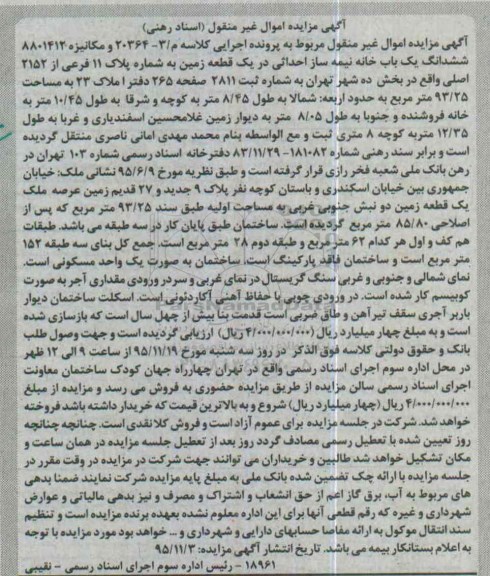 آگهی مزایده اموال غیر منقول (اسناد رهنی)
آگهی مزایده اموال غیر منقول مربوط به پرونده اجرایی کلاسه م/۳- ۲۰۳۶۴ و مکانیزه ۸۸۰۱۴۱۲
ششدانگ یک باب خانه نیمه ساز احداثی در یک قطعه زمین به شماره پلاک ۱۱ فرعی از ۲۱۵۲
اصلی واقع در بخش ده شهر تهران به شماره ثبت ۲۸۱۱ صفحه ۲۶۵ دفتر املاک ۲۳ به مساحت
۹۳/۲۵ متر مربع به حدود اربعه: شمالا به طول ۸/۴۵ متر به کوچه و شرقا به طول ۱۰/۴۵ متر به
خانه فروشنده و جنوبا به طول ۸/۰۵ متر به دیوار زمین غلامحسین اسفندیاری و غربا به طول
۱۲/۳۵ متربه کوچه ۸ متری ثبت و مع الواسطه بنام محمد مهدی امانی ناصری منتقل گردیده
است و برابر سند رهنی شماره ۱۸۱۰۸۲- ۸۳/۱۱/۲۹ دفترخانه اسناد رسمی شماره ۱۰۳ تهران در
رهن بانک ملی شعبه فخر رازی قرار گرفته است و طبق نظریه مورخ ۹۵/۶/۹ نشانی ملک: خیابان
جمهوری بین خیابان اسکندری و باستان کوچه نفر پلاک ۹ جدید و ۲۷ قدیم زمین عرصه ملک
یک قطعه زمین دو نبش جنوبی غربی به مساحت اولیه طبق سند ۹۳/۲۵ متر مربع که پس از
اصلاحی ۸۵/۸۰ متر مربع گردیده است. ساختمان طبق پایان کار در سه طبقه می باشد. طبقات
هم کف و اول هر کدام ۶۲ متر مربع و طبقه دوم ۲۸ متر مربع است. جمع کل بنای سه طبقه ۱۵۲
متر مربع است و ساختمان فاقد پارکینگ است. ساختمان به صورت یک واحد مسکونی است.
نمای شمالی و جنوبی و غربی سنگ گریستال در نمای غربی و سردر ورودی مقداری آجر به صورت
کوبیسم کار شده است. در ورودی چوبی با حفاظ آهنی آکاردئونی است. اسکلت ساختمان دیوار
باربر آجری سقف تیرآهن و طاق ضربی است قدمت بنا بیش از چهل سال است که بازسازی شده
است و به مبلغ چهار میلیارد ریال (۴/۰۰۰/۰۰۰/۰۰۰ ریال) ارزیابی گردیده است و جهت وصول طلب
بانک و حقوق دولتی کلاسه فوق الذکر در روز سه شنبه مورخ ۹۵/۱۱/۱۹ از ساعت ۹ الی ۱۲ ظهر
در محل اداره سوم اجرای اسناد رسمی واقع در تهران چهارراه جهان کودک ساختمان معاونت
اجرای اسناد رسمی سالن مزایده از طریق مزایده حضوری به فروش می رسد و مزایده از مبلغ
۴/۰۰۰/۰۰۰/۰۰۰ ریال (چهار میلیارد ریال) شروع و به بالاترین قیمت که خریدار داشته باشد فروخته
خواهد شد. شرکت در جلسه مزایده برای عموم آزاد است و فروش کلا نقدی است. چنانچه چنانچه
روز تعیین شده با تعطیل رسمی مصادف گردد روز بعد از تعطیل جلسه مزایده در همان ساعت و
مکان تشکیل خواهد شد طالبین و خریداران می توانند جهت شرکت در مزایده در وقت مقرر در
جلسه مزایده با ارائه چک تضمین شده بانک ملی به مبلغ پایه مزایده شرکت نمایند ضمنا بدهی
های مربوط به آب، برق گاز اعم از حق انشعاب و اشتراک و مصرف و نیز بدهی مالیاتی و عوارض
شهرداری و غیره که رقم قطعی آنها برای این اداره معلوم نشده بعهده برنده مزایده است و تنظیم
سند انتقال موکول به ارائه مفاصا حسابهای دارایی و شهرداری و ... خواهد بود مورد مزایده با توجه
به اعلام بستانکار بیمه می باشد. تاریخ انتشار آگهی مزایده: ۹۵/۱۱/۳
۱۸۹۶۱ - رئیس اداره سوم اجرای اسناد رسمی - نقیبی